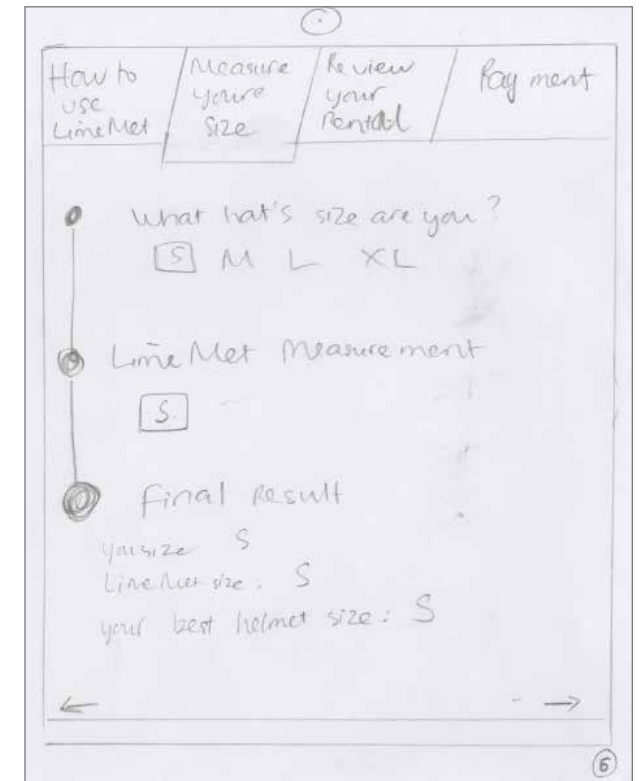 How to
use
LimeMet
Measure
youre
size
Review
your
Rental
Payment
What hat's size are you?
S M L XL
LimeMet Measurement
S
Final Result
size S
LimeMet size: S
your best helmet size: S
6